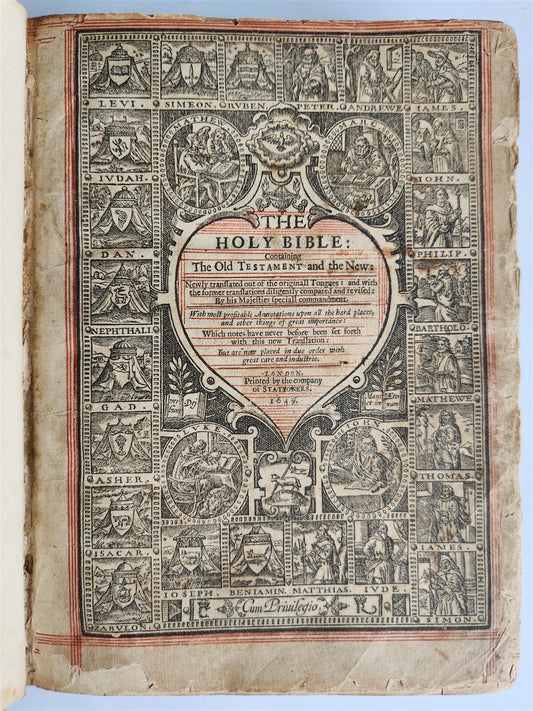 LEVI. SIMEON. RVBEN. PETER. ANDREWE IAMES.
MATHEW
MARC
IVDAH.
IOHN.
DAN.
PHILIP.
NEPHTHALI.
BARTHOLO.
GAD.
MATHEWE.
ASHER.
THOMAS.
ISACAR.
IAMES.
ZABVLON.
SIMON.
THE
HOLY BIBLE:
Containing
The Old TESTAMENT and the New:
Newly translated out of the originall Tongues: and with
the former translations diligently compared and revised:
By his Majesties speciall commandment.
With most profitable Annotations upon all the hard places,
and other things of great importance:
Which notes have never before been set forth
with this new Translation:
But are now placed in due order with
great care and industrie.
LONDON,
Printed by the company
of STATIONERS.
1649.
LVKE
IOHN
IOSEPH. BENIAMIN. MATTHIAS. IVDE.
Cum Privilegio